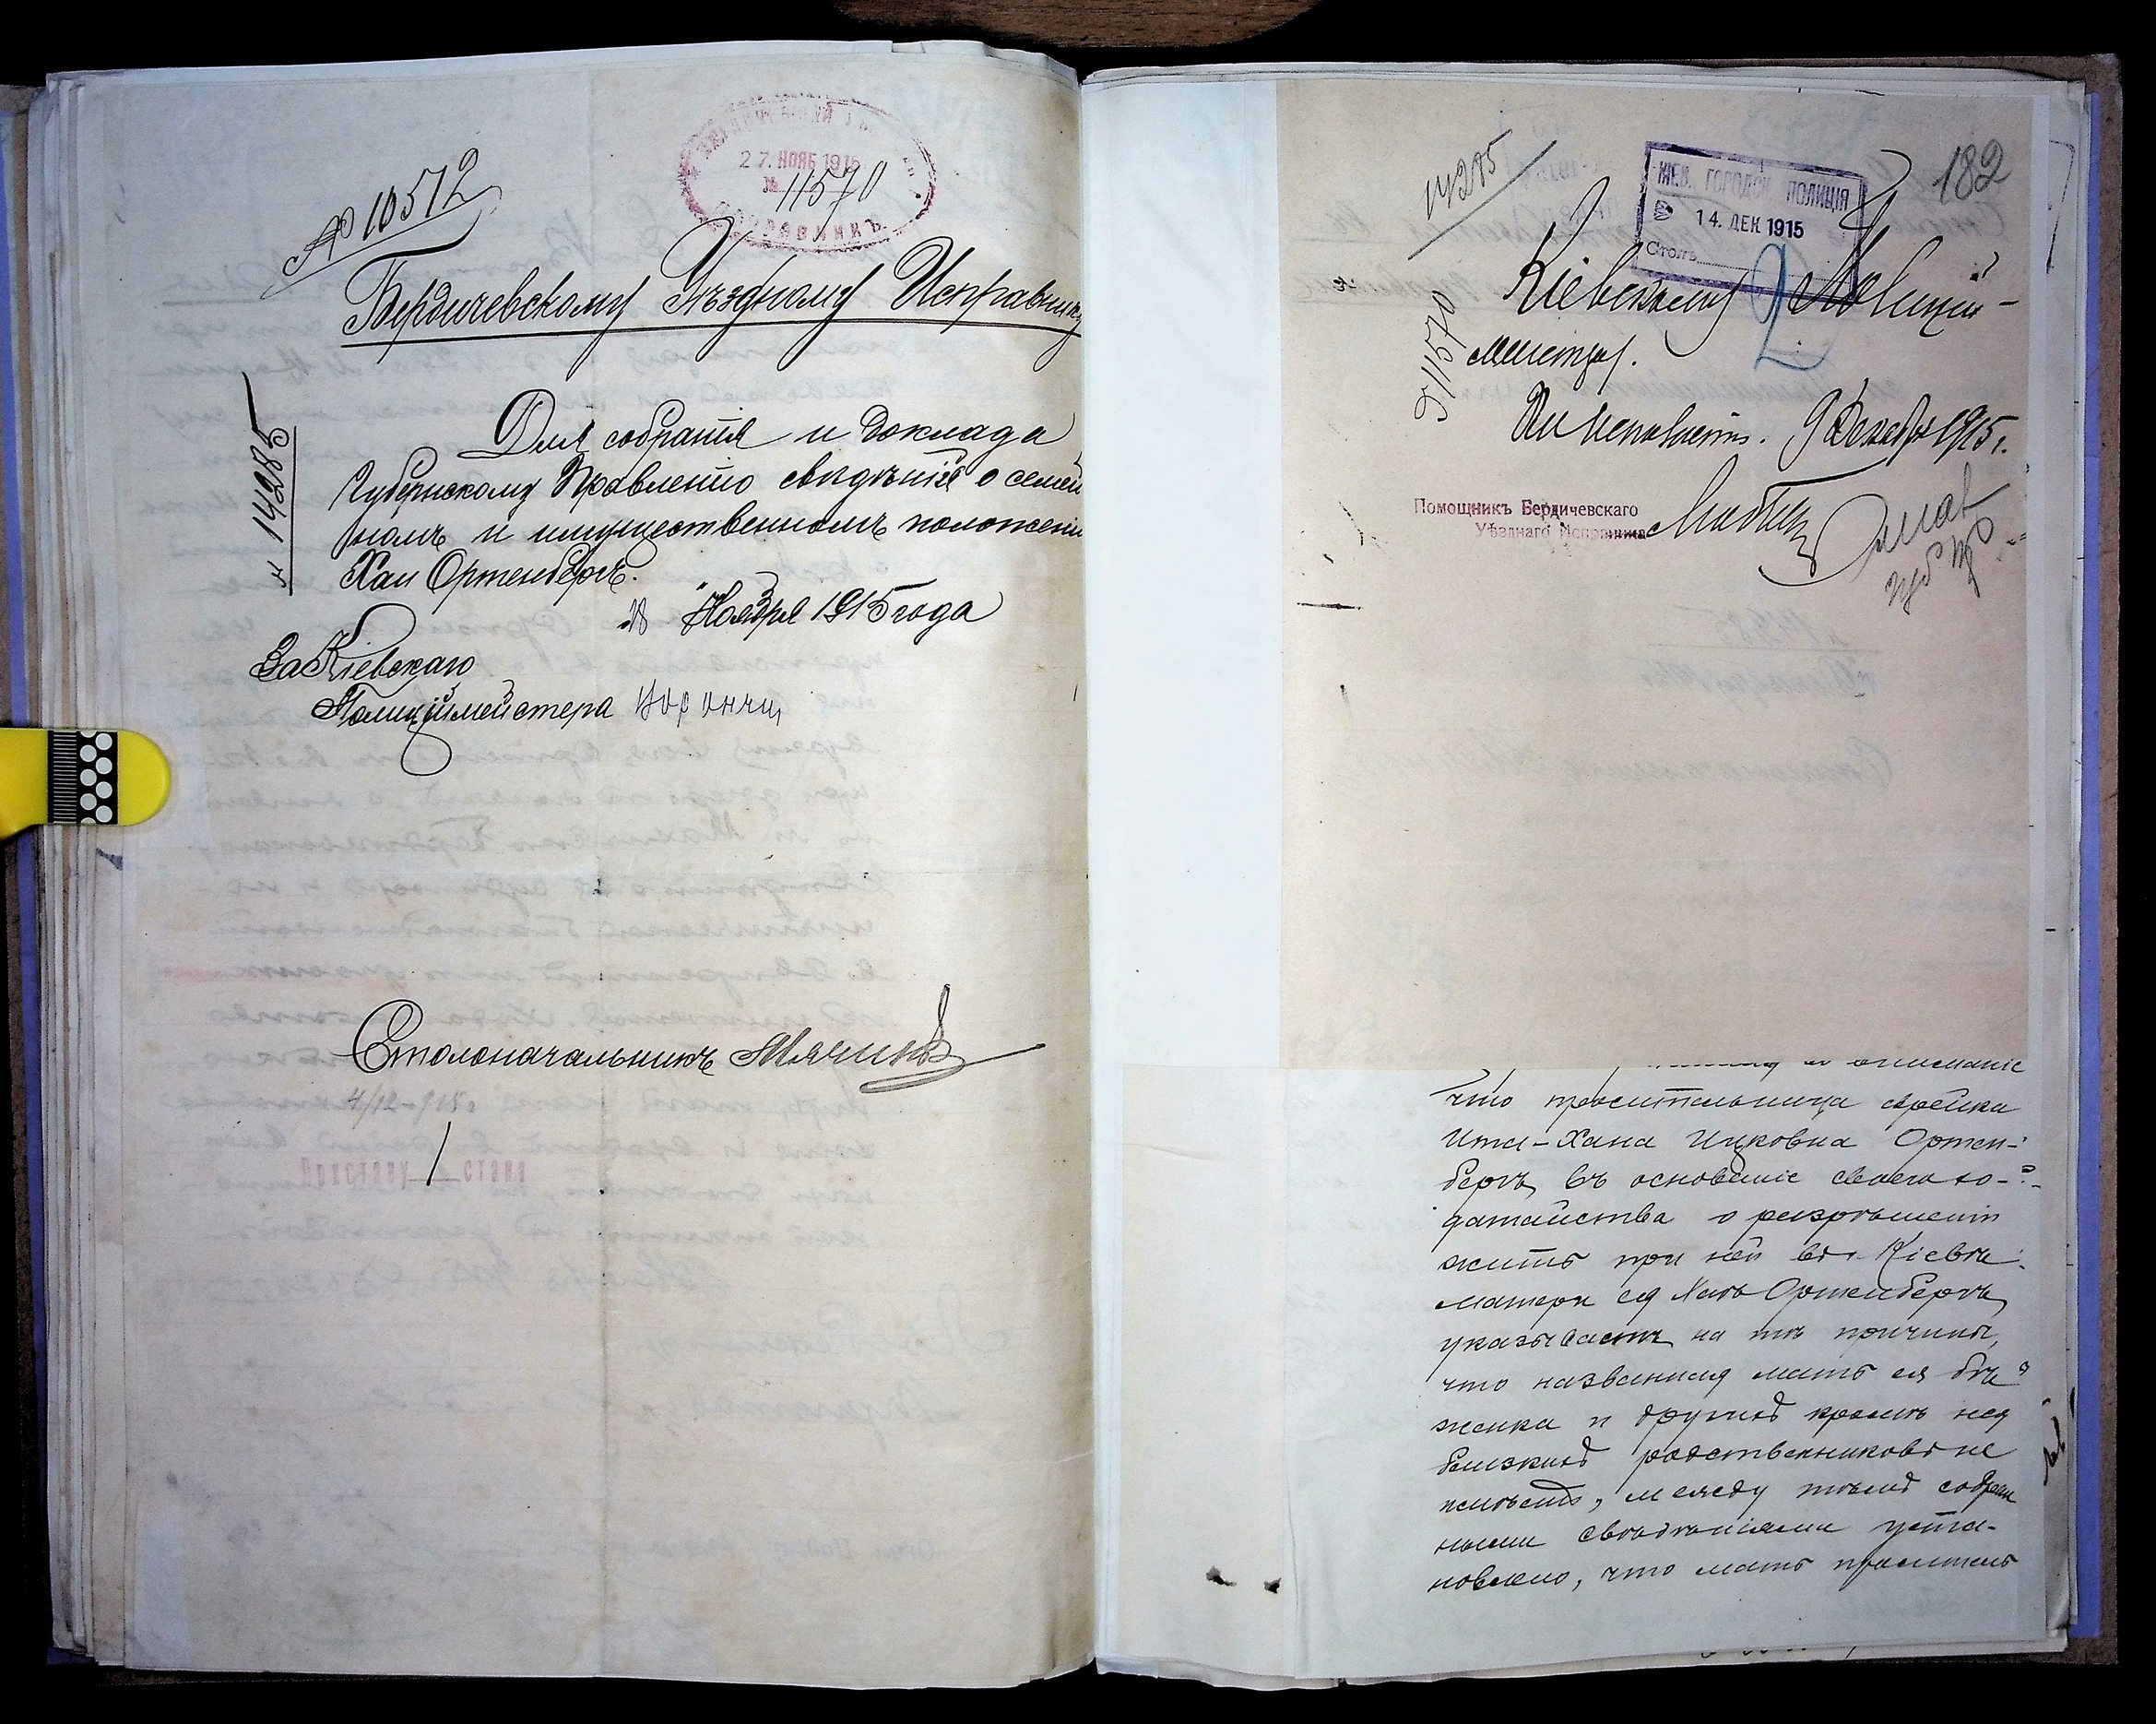 № 10512
27. НОЯБ 1915
№ 11570
Бердичевскому Уѣздному Исправнику
Для собранія и доклада
Губернскому Правленію свѣдѣній о семей
номъ и имущественномъ положеніи
Хаи Ортенбергъ.
Ноября 1915 года
За Кіевскаго
Полицiймейстера
н 14285
Столоначальникъ
4/12-915 г
Приставу 1 стана
14285
КІЕВ. ГОРОДСК. ПОЛИЦІЯ
14. ДЕК 1915
Столъ
182
Кіевскому Полицій-
мейстеру.
11570
По исполненіи. 9 Декабря 1915 г.
Помощникъ Бердичевскаго
Уѣзднаго Исправника
что просительница еврейка
Ита-Хана Ицковна Ортен-
бергъ, въ основаніе своего хо-
датайства о разрѣшеніи
жить при ней въ г. Кіевѣ
матери ея Хаѣ Ортенбергъ,
указываетъ на тѣ причины,
что названная мать ея бѣ
женка и другихъ кромѣ нея
близкихъ родственниковъ не
имѣетъ, между тѣмъ собран
ными свѣдѣніями уста-
новлено, что мать проситель